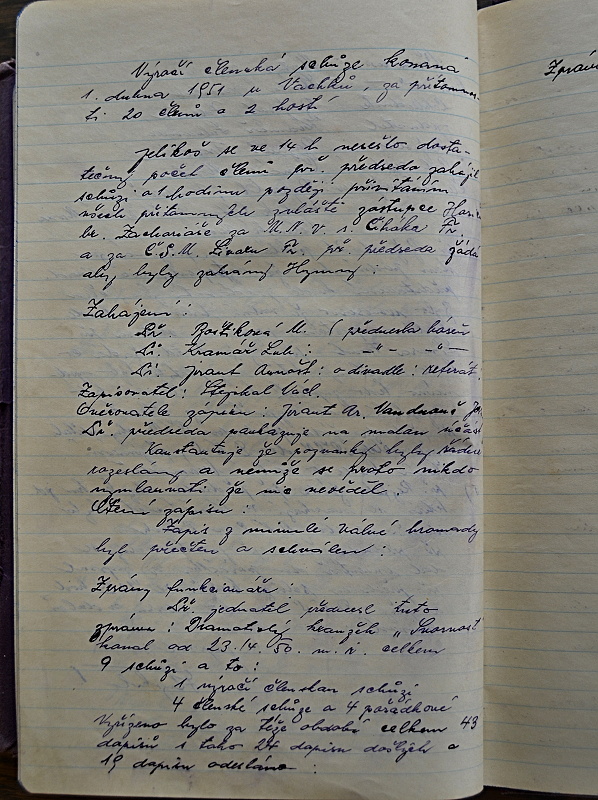 Výroční členská schůze konaná
1. dubna 1951 u Vachků, za přítomnos-
ti 20 členů a 2 hostí
Zpráv
Jelikož se ve 14 h nesešlo dosta-
tečný počet členů př. předseda zahájil
schůzi o 1 hodinu později přivítáním
všech přítomných zvláště zástupce
br. Zachariáše za M.N.V. s. Cháka Fr.
a za Č.S.M. Fr. př. předseda žádá
aby byly zahrány Hymny :
Zahájení :
Př. M. ( přednesla báseň
Př. Kramář Lub : -"- -"-
Př. Jirant Arnošt : o divadle : referát.
Zapisovatel : Stejskal Václ.
Ověrovatelé zápisu : Jirant Ar.
Př. předseda poukazuje na malou účast
Konstantuje že pozvánky byly řádně
rozeslány a nemůže se proto nikdo
vymlouvati že nic nevěděl.
Čtení zápisu :
Zápis z minulé valné hromady
byl přečten a schválen :
Zprávy funkcionářů :
Př. jednatel přednesl tuto
zprávu : Dramatický kroužek „Svornost
konal od 23./4. 50. m. r. celkem
9 schůzí a to :
1 výroční členskou schůzi
4 členské schůze a 4 pořádkové
Vyřízeno bylo za téže období celkem 43
dopisů z toho 24 dopisů došlých a
19 dopisů odesláno :